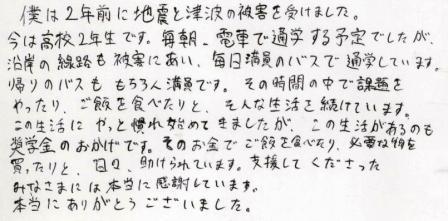 僕は2年前に地震と津波の被害を受けました。
今は高校2年生です。毎朝、電車で通学する予定でしたが、
沿岸の線路も被害にあい、毎日満員のバスで通学しています。
帰りのバスも もちろん満員です。その時間の中で課題を
やったり、ご飯を食べたりと、そんな生活を続けています。
この生活に やっと慣れ始めて きましたが、この生活があるのも
奨学金のおかげです。そのお金で ご飯を食べたり、必要な物を
買ったりと、日々、助けられています。支援して くださった
みなさまには本当に感謝しています。
本当に ありがとう ございました。